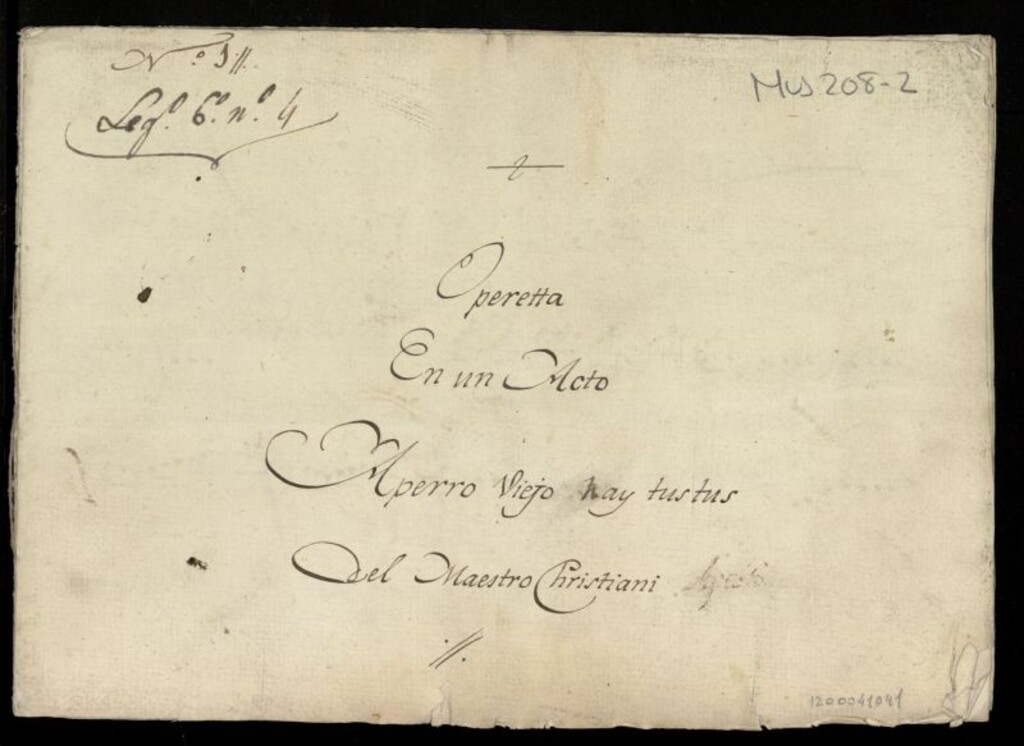 Nº 3//.
Legº. 6º. nº. 4
Mus 208-2
Operetta
En un Acto
Aperro Viejo hay tustus
Del Maestro Christiani
1200041041